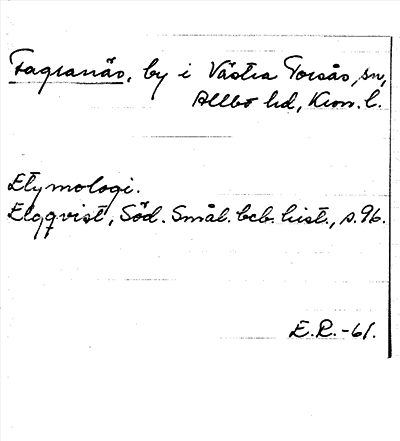 Fagranäs, by i Västra Torsås sn,
Allbo hd, Kron. l.
Etymologi.
Elgqvist, Söd. Smål. beb. hist., s. 96.
E.R.-61.